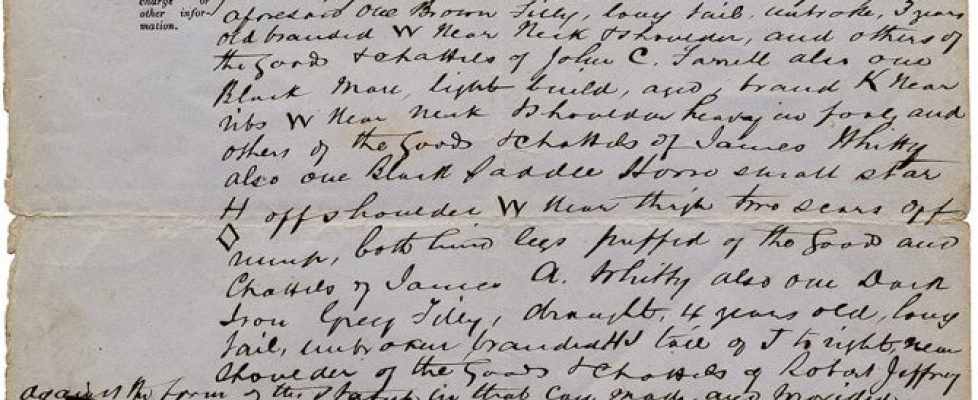 charge or
other infor-
mation.
aforesaid One Brown Filly, long tail, unbroke, 3 years
old branded W near Neck & shoulder, and others of
the Goods & chattels of John C. Farrell also one
Black Mare, light build, aged, brand K near
ribs W near neck & shoulder heavy in foal, and
others of the Goods & chattels of James Whitty
also one Black Saddle Horse small star
H off shoulder W near thigh two scars off
rump, both hind legs puffed of the Goods and
Chattels of James A. Whitty also one Dark
Iron Grey Filly, draught, 4 years old, long
tail, unbroken, branded HJ tail of J to right, near
shoulder of the Goods & chattels of Robert Jeffrey
against the form of the Statute in that Case made and Provided